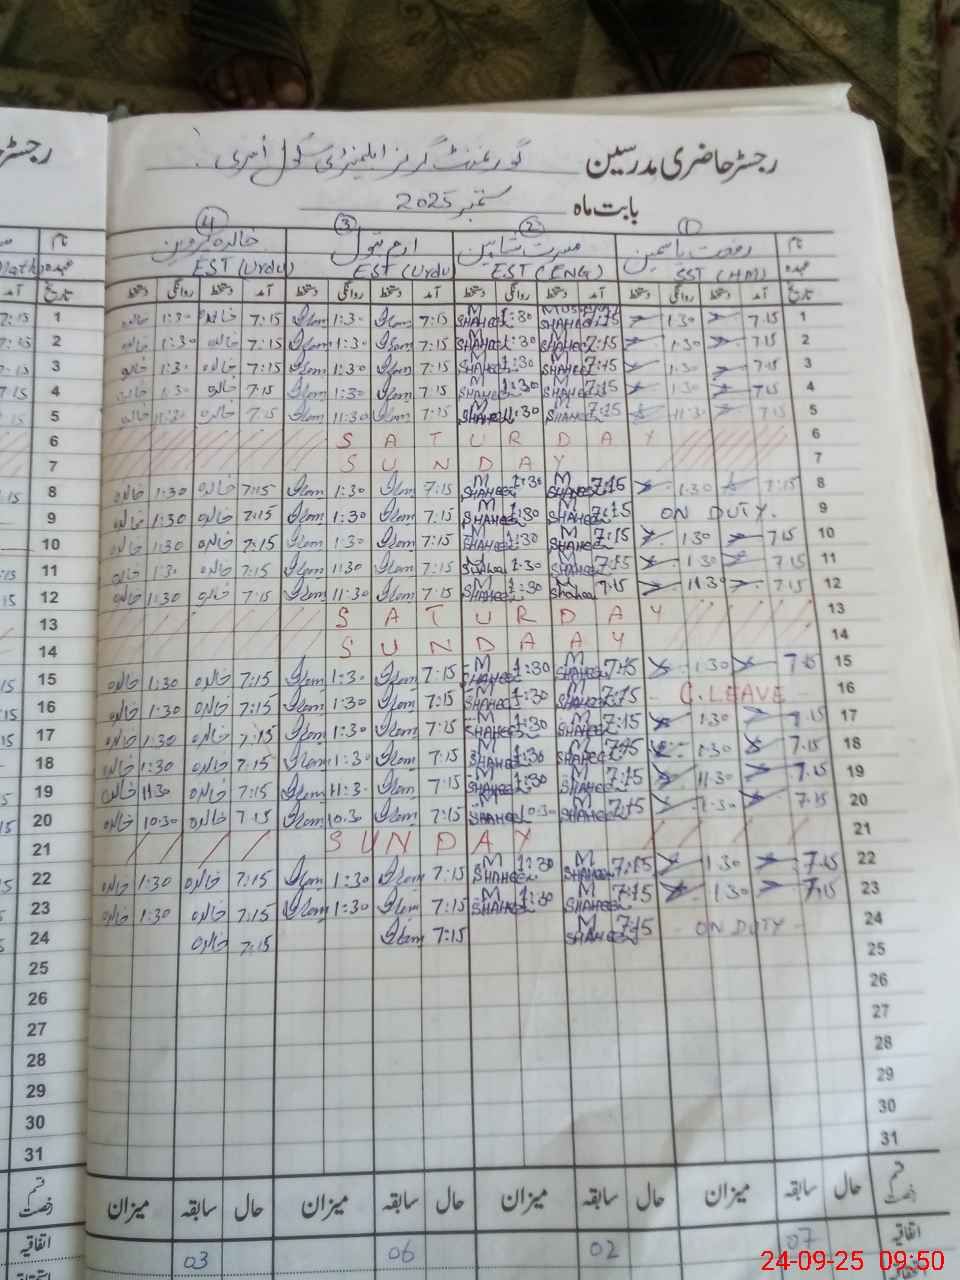 رجسٹر حاضری مدرسین گورنمنٹ گرلز ایلیمنٹری سکول
بابت ماہ ستمبر 2025
① ② ③ ④
نام رفعت یاسمین مسرت شاہین ارم بتول خالدہ پروین
عہدہ SST (HM) EST (ENG) EST (Urdu) EST (Urdu)
تاریخ آمد دستخط روانگی دستخط آمد دستخط روانگی دستخط آمد دستخط روانگی دستخط آمد دستخط روانگی دستخط
1 7.15 1.30 7:15 SHAHEEN 1:30 SHAHEEN 7:15 Iram 1:30 Iram 7:15 خالدہ 1:30 خالدہ 1
2 7.15 1.30 7:15 M SHAHEEN 1:30 M SHAHEEN 7:15 Iram 1:30 Iram 7:15 خالدہ 1:30 خالدہ 2
3 7.15 1.30 7:15 M SHAHEEN 1:30 M SHAHEEN 7:15 Iram 1:30 Iram 7:15 خالدہ 1:30 خالدہ 3
4 7.15 1.30 7:15 M SHAHEEN 1:30 M SHAHEEN 7:15 Iram 1:30 Iram 7:15 خالدہ 1:30 خالدہ 4
5 7.15 11.30 7:15 M SHAHEEN 11:30 M SHAHEEN 7:15 Iram 11:30 Iram 7:15 خالدہ 11:30 خالدہ 5
6 SATURDAY 6
7 SUNDAY 7
8 7:15 1.30 7:15 M SHAHEEN 1:30 M SHAHEEN 7:15 Iram 1:30 Iram 7:15 خالدہ 1:30 خالدہ 8
9 ON DUTY. 7:15 M SHAHEEN 1:30 M SHAHEEN 7:15 Iram 1:30 Iram 7:15 خالدہ 1:30 خالدہ 9
10 7.15 1.30 7:15 M SHAHEEN 1:30 M SHAHEEN 7:15 Iram 1:30 Iram 7:15 خالدہ 1:30 خالدہ 10
11 7.15 1.30 7:15 M SHAHEEN 1:30 7:15 Iram 1:30 Iram 7:15 خالدہ 1:30 خالدہ 11
12 7.15 11.30 7:15 M Shaheen 1:30 M SHAHEEN 7:15 Iram 11:30 Iram 7:15 خالدہ 11:30 خالدہ 12
13 SATURDAY 13
14 SUNDAAY 14
15 7.15 1.30 7:15 M SHAHEEN 1:30 M SHAHEEN 7:15 Iram 1:30 Iram 7:15 خالدہ 1:30 خالدہ 15
16 - C.LEAVE - 7:15 M SHAHEEN 1:30 M SHAHEEN 7:15 Iram 1:30 Iram 7:15 خالدہ 1:30 خالدہ 16
17 7.15 1.30 7:15 M SHAHEEN 1:30 M SHAHEEN 7:15 Iram 1:30 Iram 7:15 خالدہ 1:30 خالدہ 17
18 7.15 1.30 7:15 M SHAHEEN 1:30 M SHAHEEN 7:15 Iram 1:30 Iram 7:15 خالدہ 1:30 خالدہ 18
19 7.15 11.30 7:15 M SHAHEEN 1:30 M SHAHEEN 7:15 Iram 11:30 Iram 7:15 خالدہ 11:30 خالدہ 19
20 7.15 7:15 M SHAHEEN 10:30 M SHAHEEN 7:15 Iram 10.30 Iram 7.15 خالدہ 10.30 خالدہ 20
21 SUNDAY 21
22 7.15 1.30 7:15 M SHAHEEN 1:30 M SHAHEEN 7:15 Iram 1:30 Iram 7:15 خالدہ 1:30 خالدہ 22
23 7.15 1.30 7:15 M SHAHEEN 1:30 M SHAHEEN 7:15 Iram 1:30 Iram 7:15 خالدہ 1:30 خالدہ 23
24 - ON DUTY - 7:15 M SHAHEEN 7:15 Iram 7:15 خالدہ 24
25 25
26 26
27 27
28 28
29 29
30 30
31 31
قسم رخصت حال سابقہ میزان حال سابقہ میزان حال سابقہ میزان حال سابقہ میزان قسم رخصت
اتفاقیہ 07 02 06 03 اتفاقیہ
24-09-25 09:50